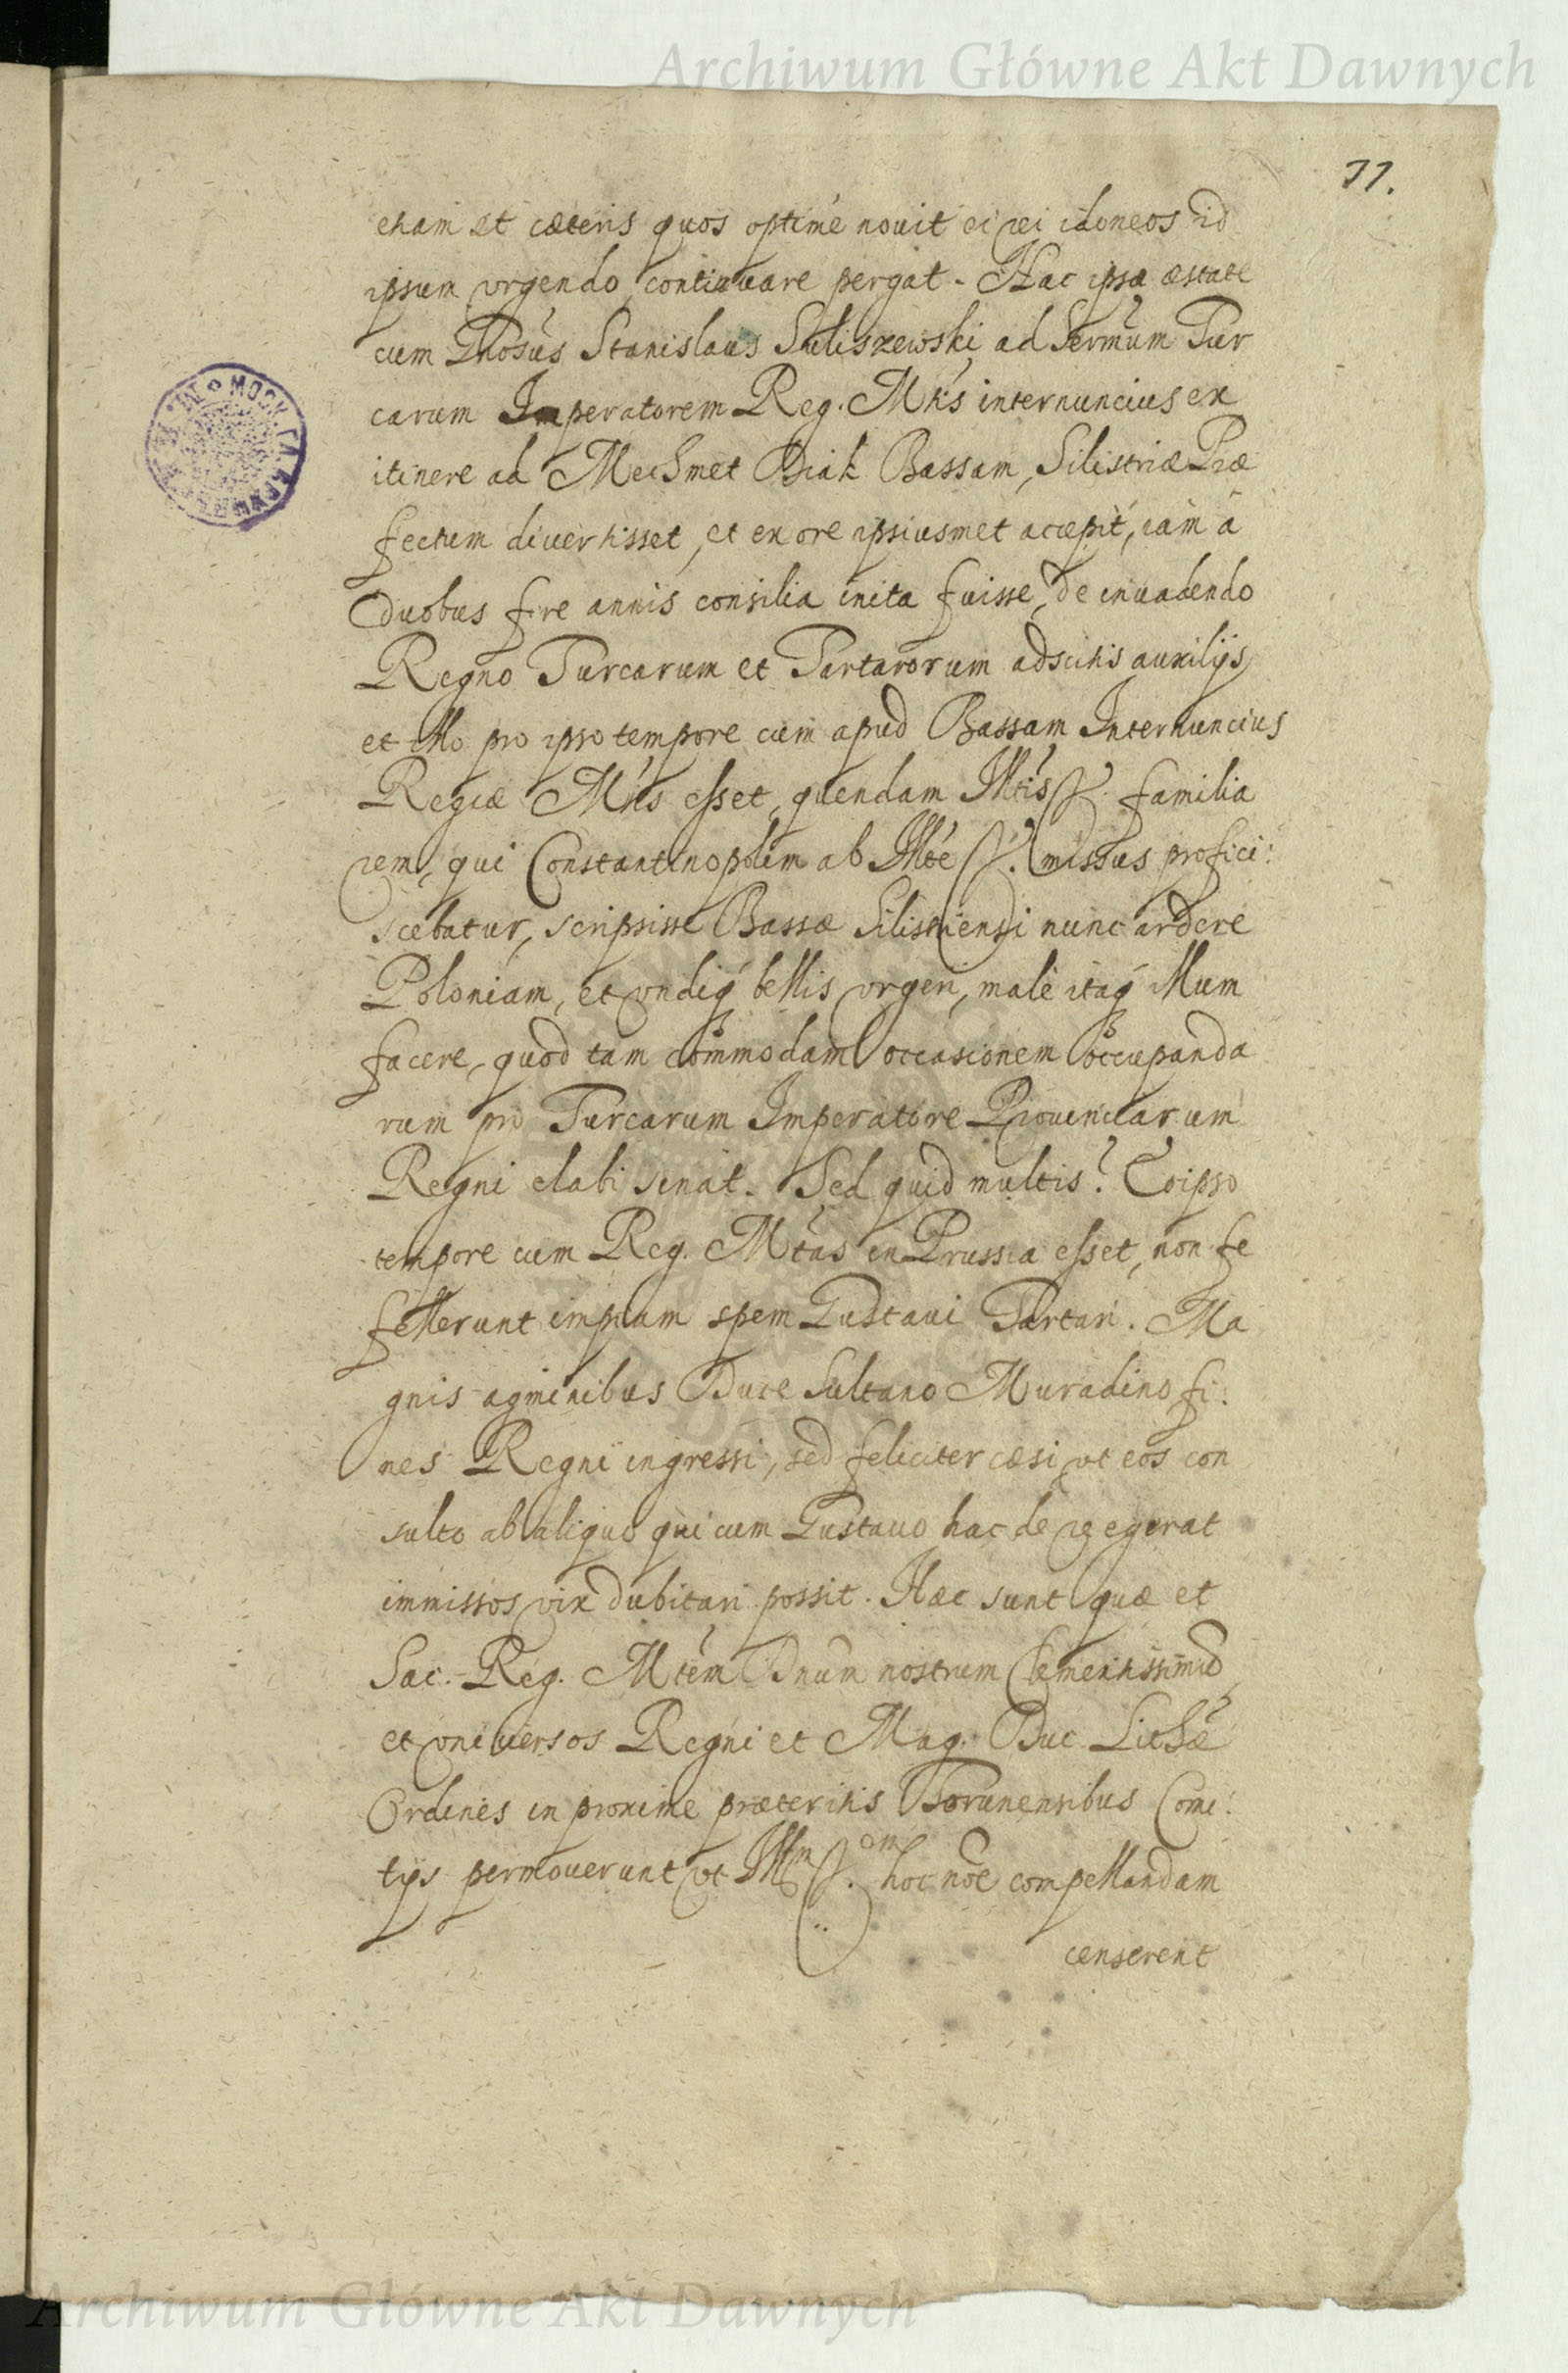 Archiwum Główne Akt Dawnych
77.
etiam et cæteris quos optimé nouit ei rei idoneos id
ipsum vrgendo continuare pergat. Hac ipsa æstate
cum Gnosus Stanislaus Suliszewski ad Sermum Tur
carum Imperatorem Reg. Mtis internuncius ex
itinere ad Mechmet Diak Bassam, Silistriæ Præ
fectum divertisset, et ex ore ipsiusmet accepit, iam a
duobus fere annis consilia inita fuisse, de inuadendo
Regno Turcarum et Tartarorum adscitis auxilijs,
et illo pro ipso tempore cum apud Bassam Internuncius
Regiæ Mtis esset, quendam Illtis V. familia
rem, qui Constantinopolim ab Illte V. missus profici:
scebatur, scripsisse Bassæ Silistriensi nunc ardere
Poloniam, et vndiq bellis vrgeri, malè itaq illum
facere, quod tam commodam occasionem occupanda
rum pro Turcarum Imperatore Prouinciarum
Regni elabi sinat. Sed quid multis? Eo ipso
tempore cum Reg. Mtas in Prussia esset, non fe
fellerunt impiam spem Gustaui Tartari. Ma
gnis agminibus Duce Sultano Muradino fi:
nes Regni ingressi, sed feliciter cæsi, vt eos con
sulto ab aliquo qui cum Gustauo hac de re egerat
immissos vix dubitari possit. Hæc sunt quæ et
Sac. Reg. Mtem Dnum nostrum Clementissimu
et vniuersos Regni et Mag. Duc. Lithæ
Ordines in proxime præteritis Torunensibus Comi:
tijs permouerunt vt Illm V. om hoc noe compellandam
censerent
Archiwum Główne Akt Dawnych